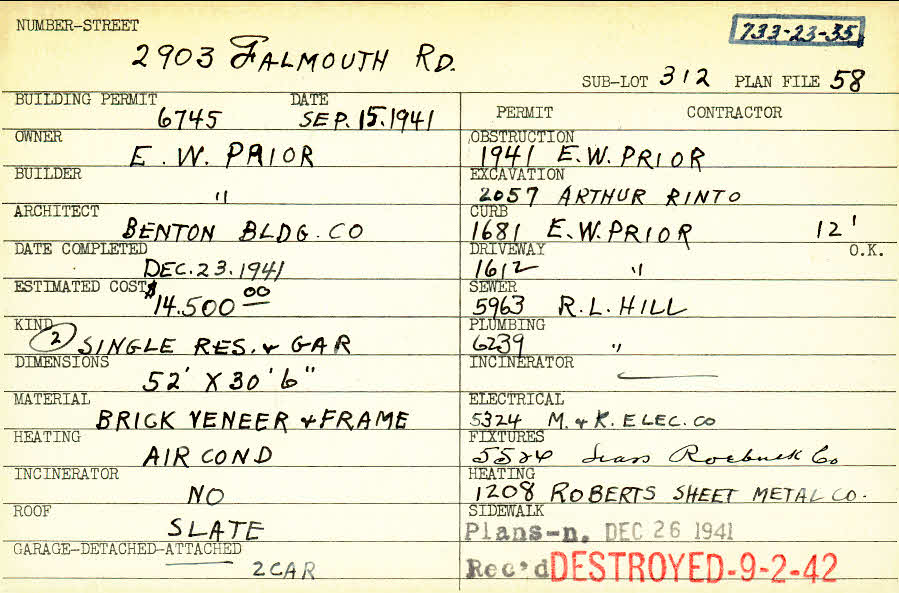 NUMBER-STREET
733-23-35
2903 FALMOUTH RD.
SUB-LOT 312 PLAN FILE 58
BUILDING PERMIT DATE
6745 SEP. 15. 1941
OWNER
E. W. PRIOR
BUILDER
"
ARCHITECT
BENTON BLDG. CO
DATE COMPLETED
DEC. 23. 1941
ESTIMATED COST
$14.500 00
KIND
2 SINGLE RES. & GAR
DIMENSIONS
52' X 30' 6"
MATERIAL
BRICK VENEER & FRAME
HEATING
AIR COND
INCINERATOR
NO
ROOF
SLATE
GARAGE-DETACHED-ATTACHED
2 CAR
PERMIT CONTRACTOR
OBSTRUCTION
1941 E.W. PRIOR
EXCAVATION
2057 ARTHUR RINTO
CURB
1681 E.W. PRIOR 12'
DRIVEWAY O.K.
1612 "
SEWER
5963 R.L. HILL
PLUMBING
6239 "
INCINERATOR
ELECTRICAL
5324 M. & K. ELEC. CO
FIXTURES
5524 Sears Roebuck Co
HEATING
1208 ROBERTS SHEET METAL CO.
SIDEWALK
Plans-n. DEC 26 1941
Rec'd DESTROYED-9-2-42